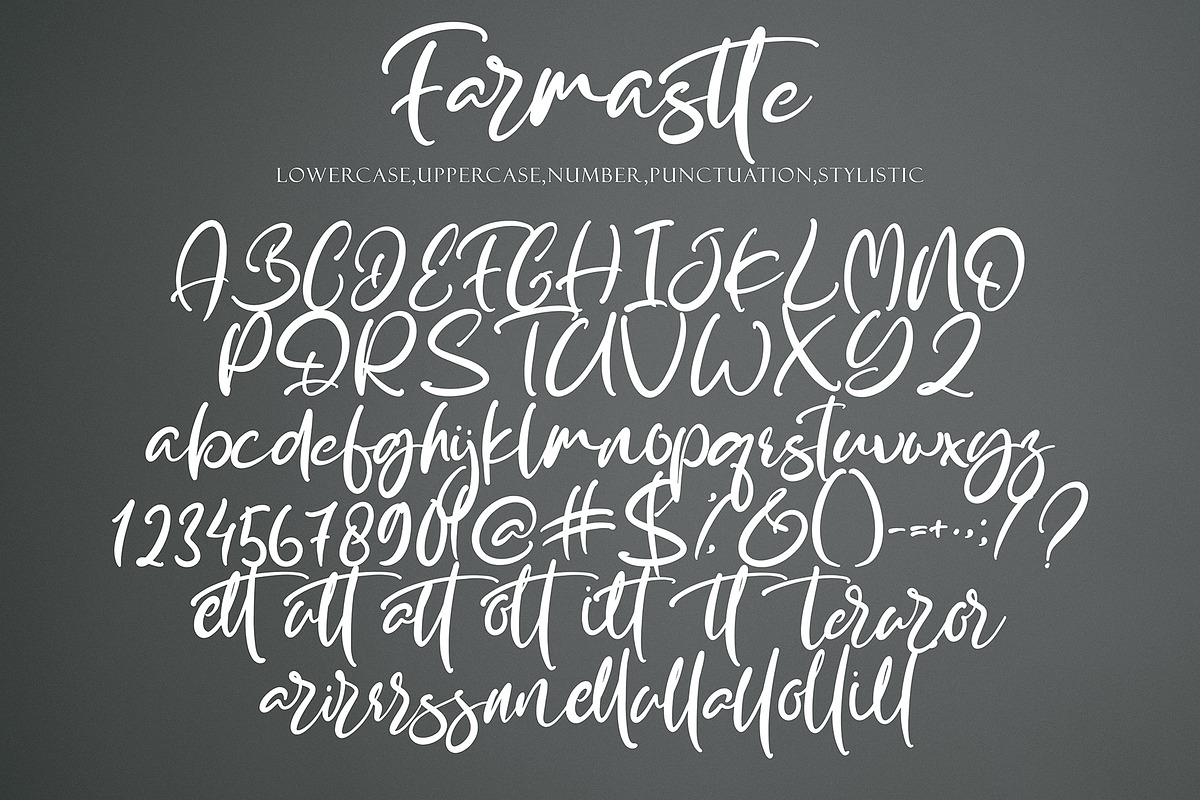 Farmastte
LOWERCASE,UPPERCASE,NUMBER,PUNCTUATION,STYLISTIC
ABCDEFGHIJKLMNO
PQRSTUVWXYZ
abcdefghijklmnopqrstuvwxyz
1234567890!@#$%&()-=+.,;:/?
ett utt att ott itt tt ter ar or
arirrrssnnellullallollill